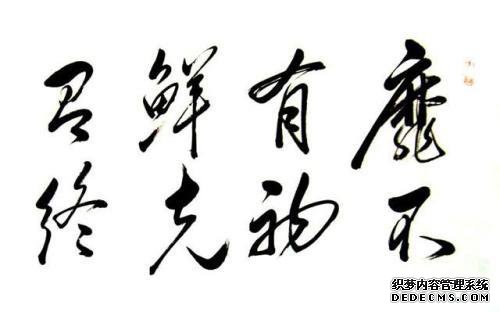 靡不
有初
鮮克
有终
织梦内容管理系统
DEDECMS.COM